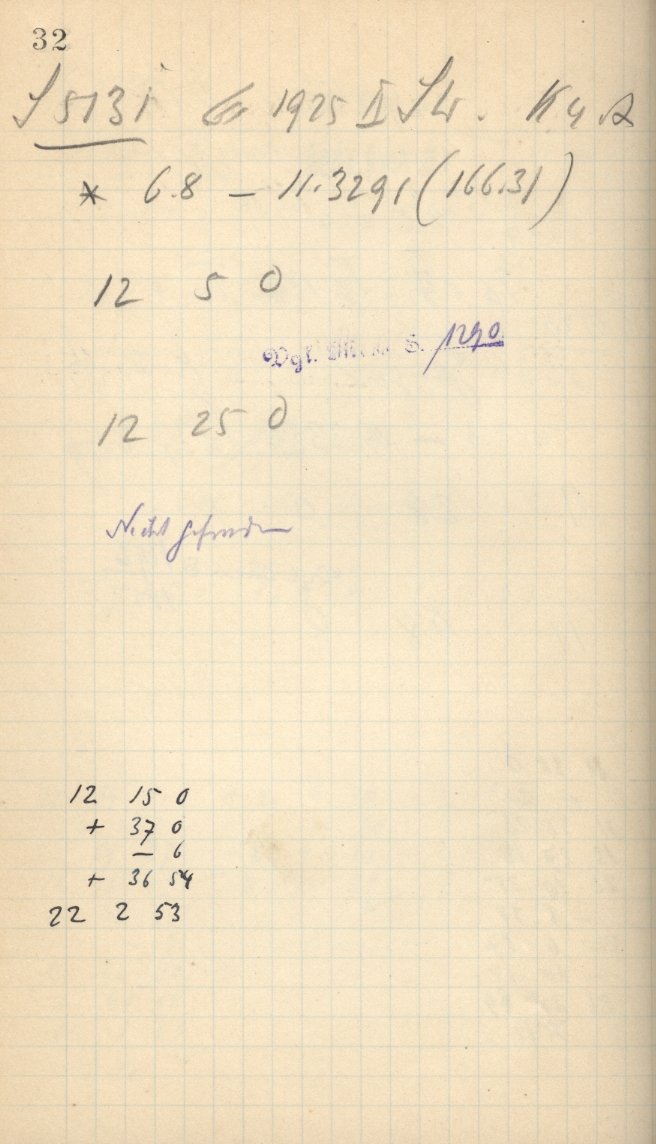 32
S 5131 1925 II KuA
* 6.8 – 11.3291 (166.31)
12 5 0
Vgl. S. 1290
12 25 0
Nicht gefunden
12 15 0
+ 37 0
– 6
+ 36 54
22 2 53